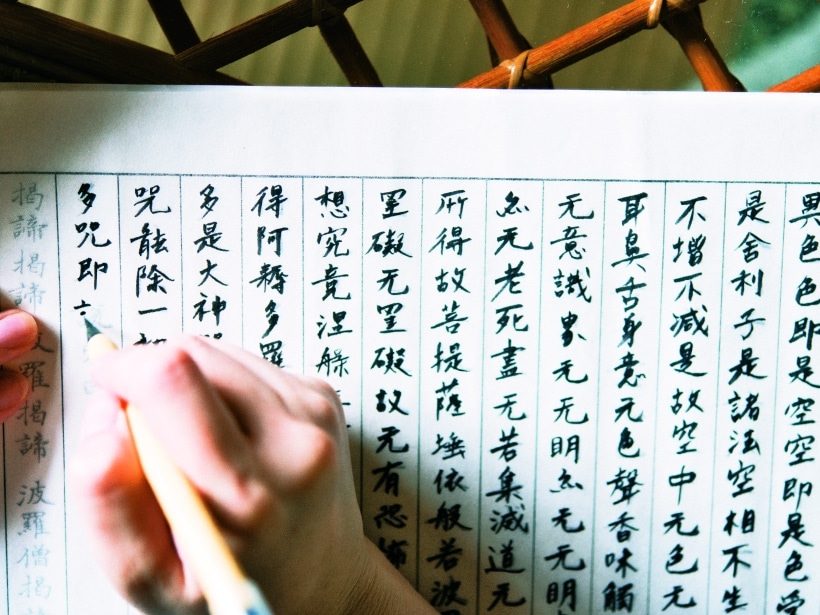 異色色即是空空即是色受
是舍利子是諸法空相不生
不增不減是故空中无色无
耳鼻舌身意无色聲香味觸
无意識界无无明亦无无明
亦无老死盡无苦集滅道无
所得故菩提薩埵依般若波
罣礙无罣礙故无有恐怖
想究竟涅槃
得阿耨多羅
多是大神
咒能除一切
多咒即
揭諦揭諦波羅揭諦波羅僧揭